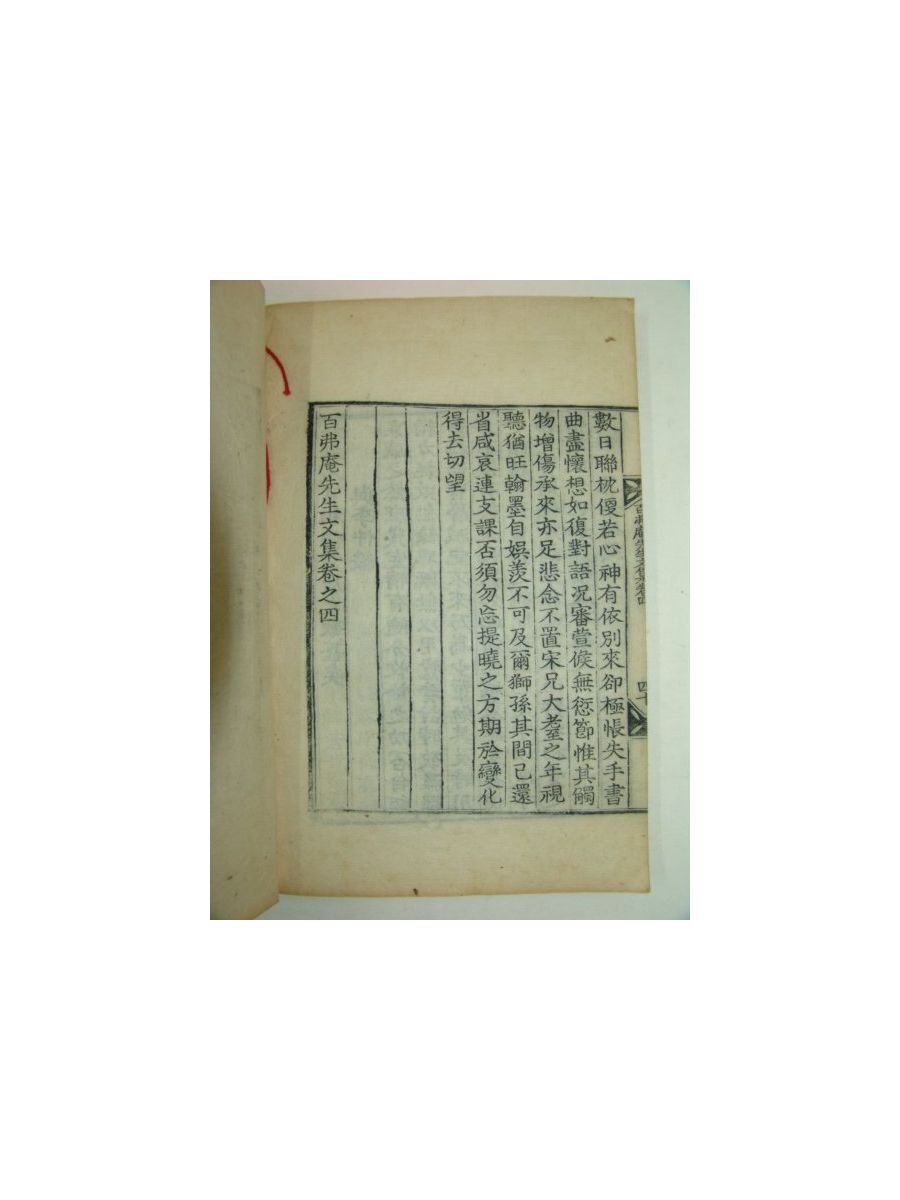 數日聯枕優若心神有依別來卻極悵失手書
曲盡懷想如復對語况審萱候無愆節惟其觸
物增傷承來亦足悲念不置宋兄大耋之年視
聽猶旺翰墨自娛羡不可及爾獅孫其間已還
省咸哀連支課否須勿忘提曉之方期於變化
得去切望
百弗庵先生文集卷之四
百弗庵先生文集卷四